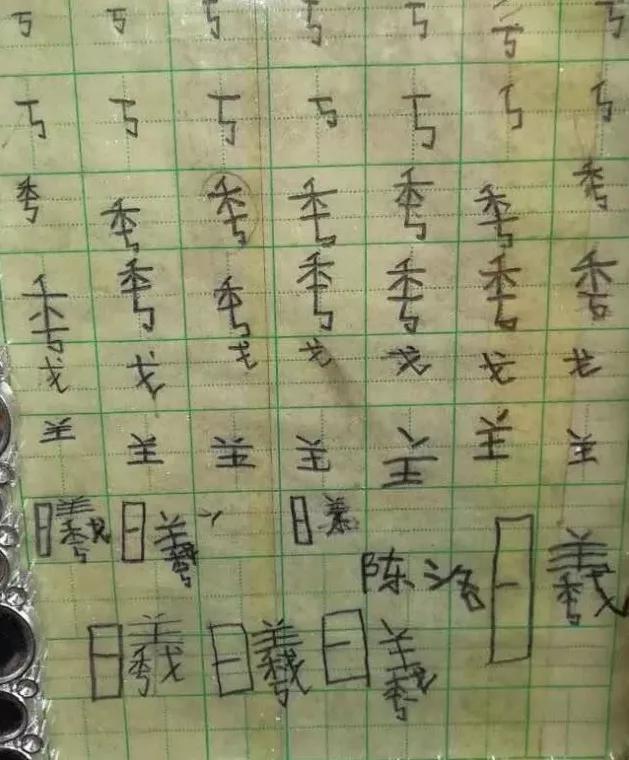 丂丂丂丂丂丂丂
丂丂丂丂丂丂丂
秀秀秀秀秀秀秀
秀秀秀秀秀秀秀
戈戈戈戈戈戈戈
𦍌𦍌𦍌𦍌𦍌𦍌𦍌
曦曦
陈洛曦
曦曦曦